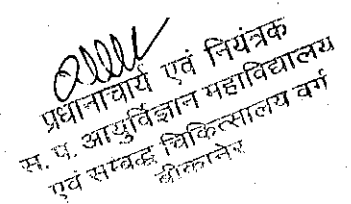 प्रधानाचार्य एवं नियंत्रक
स. प. आयुर्विज्ञान महाविद्यालय
एवं सम्बद्ध चिकित्सालय वर्ग
बीकानेर